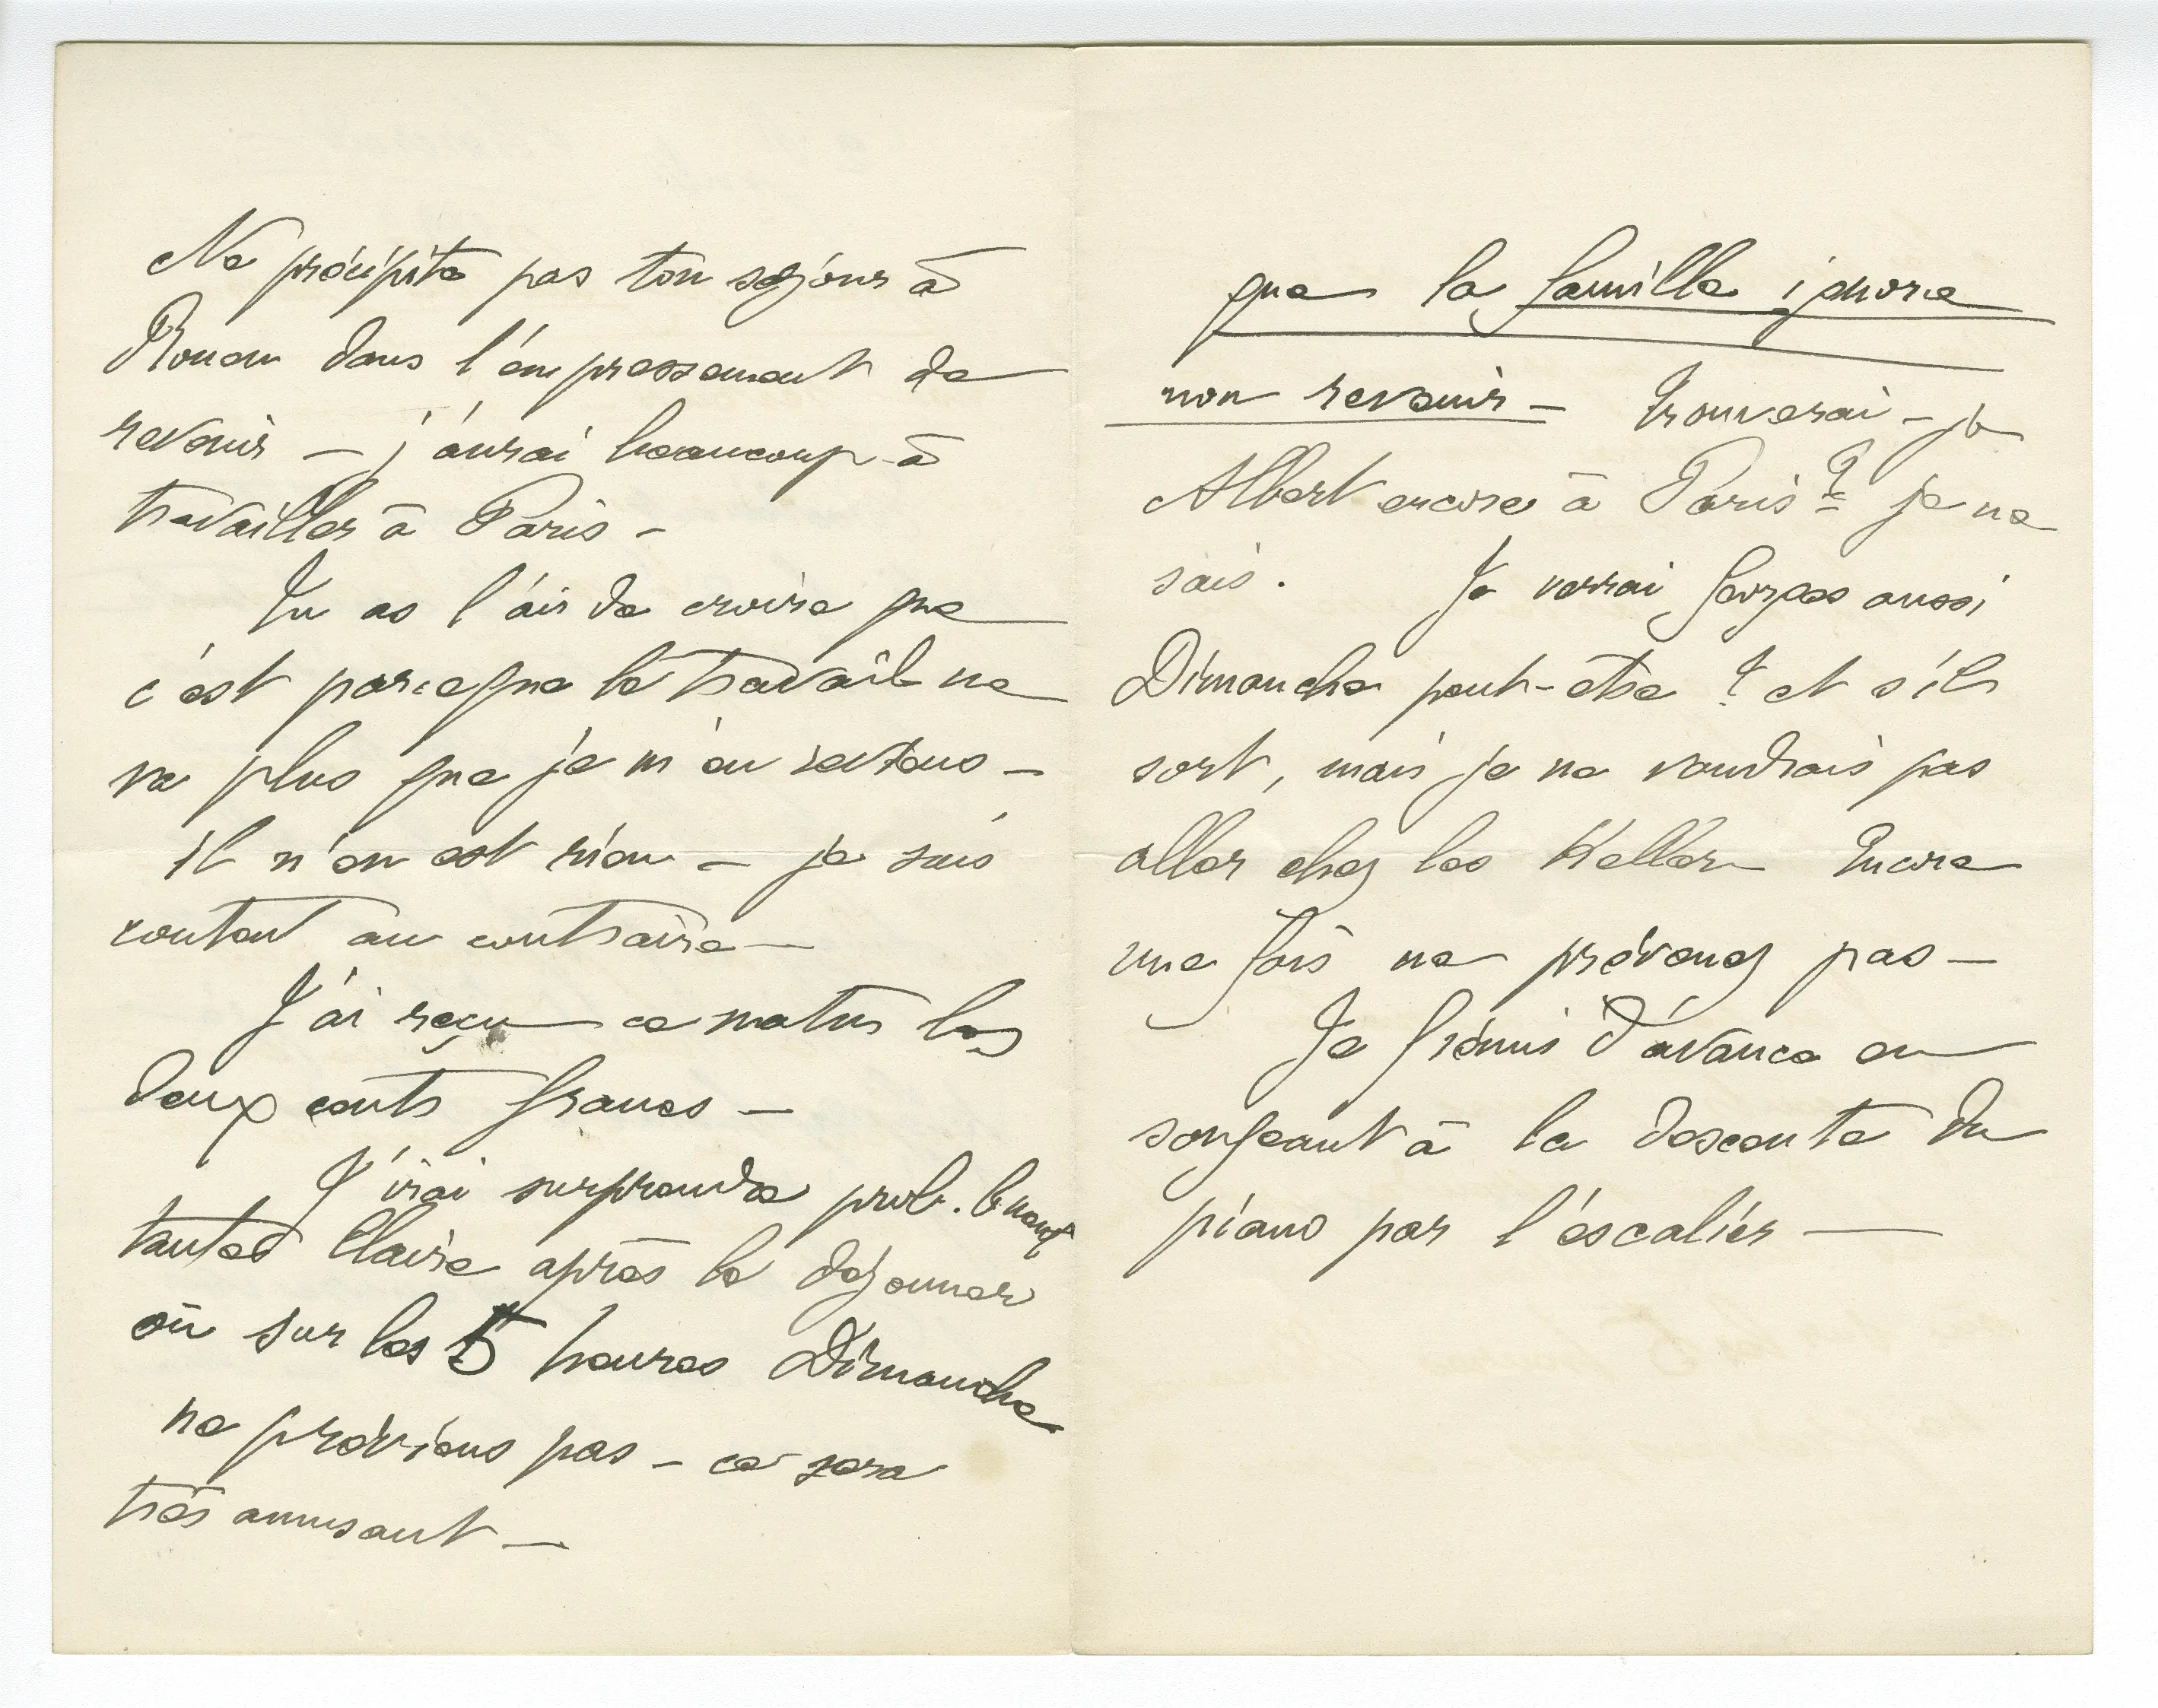 Ne précipite pas ton séjour à
Rouen dans l'empressement de
revenir – j'aurai beaucoup à
travailler à Paris –
Tu as l'air de croire que
c'est parceque le travail ne
va plus que je m'en reviens –
il n'en est rien – je suis
content au contraire –
J'ai reçu ce matin les
deux cents francs –
J'irai surprendre prob.
tantes Claire après le déjeuner
ou sur les 5 heures Dimanche
ne préviens pas – ce sera
très amusant –
que la famille ignore
mon revenir – Trouverai-je
Albert encore à Paris ? je ne
sais. Je verrai Georges aussi
Dimanche peut-être ? et s'il
sort, mais je ne voudrais pas
aller chez les Keller Encore
une fois ne prévenez pas –
Je frémis d'avance en
songeant à la descente du
piano par l'escalier –